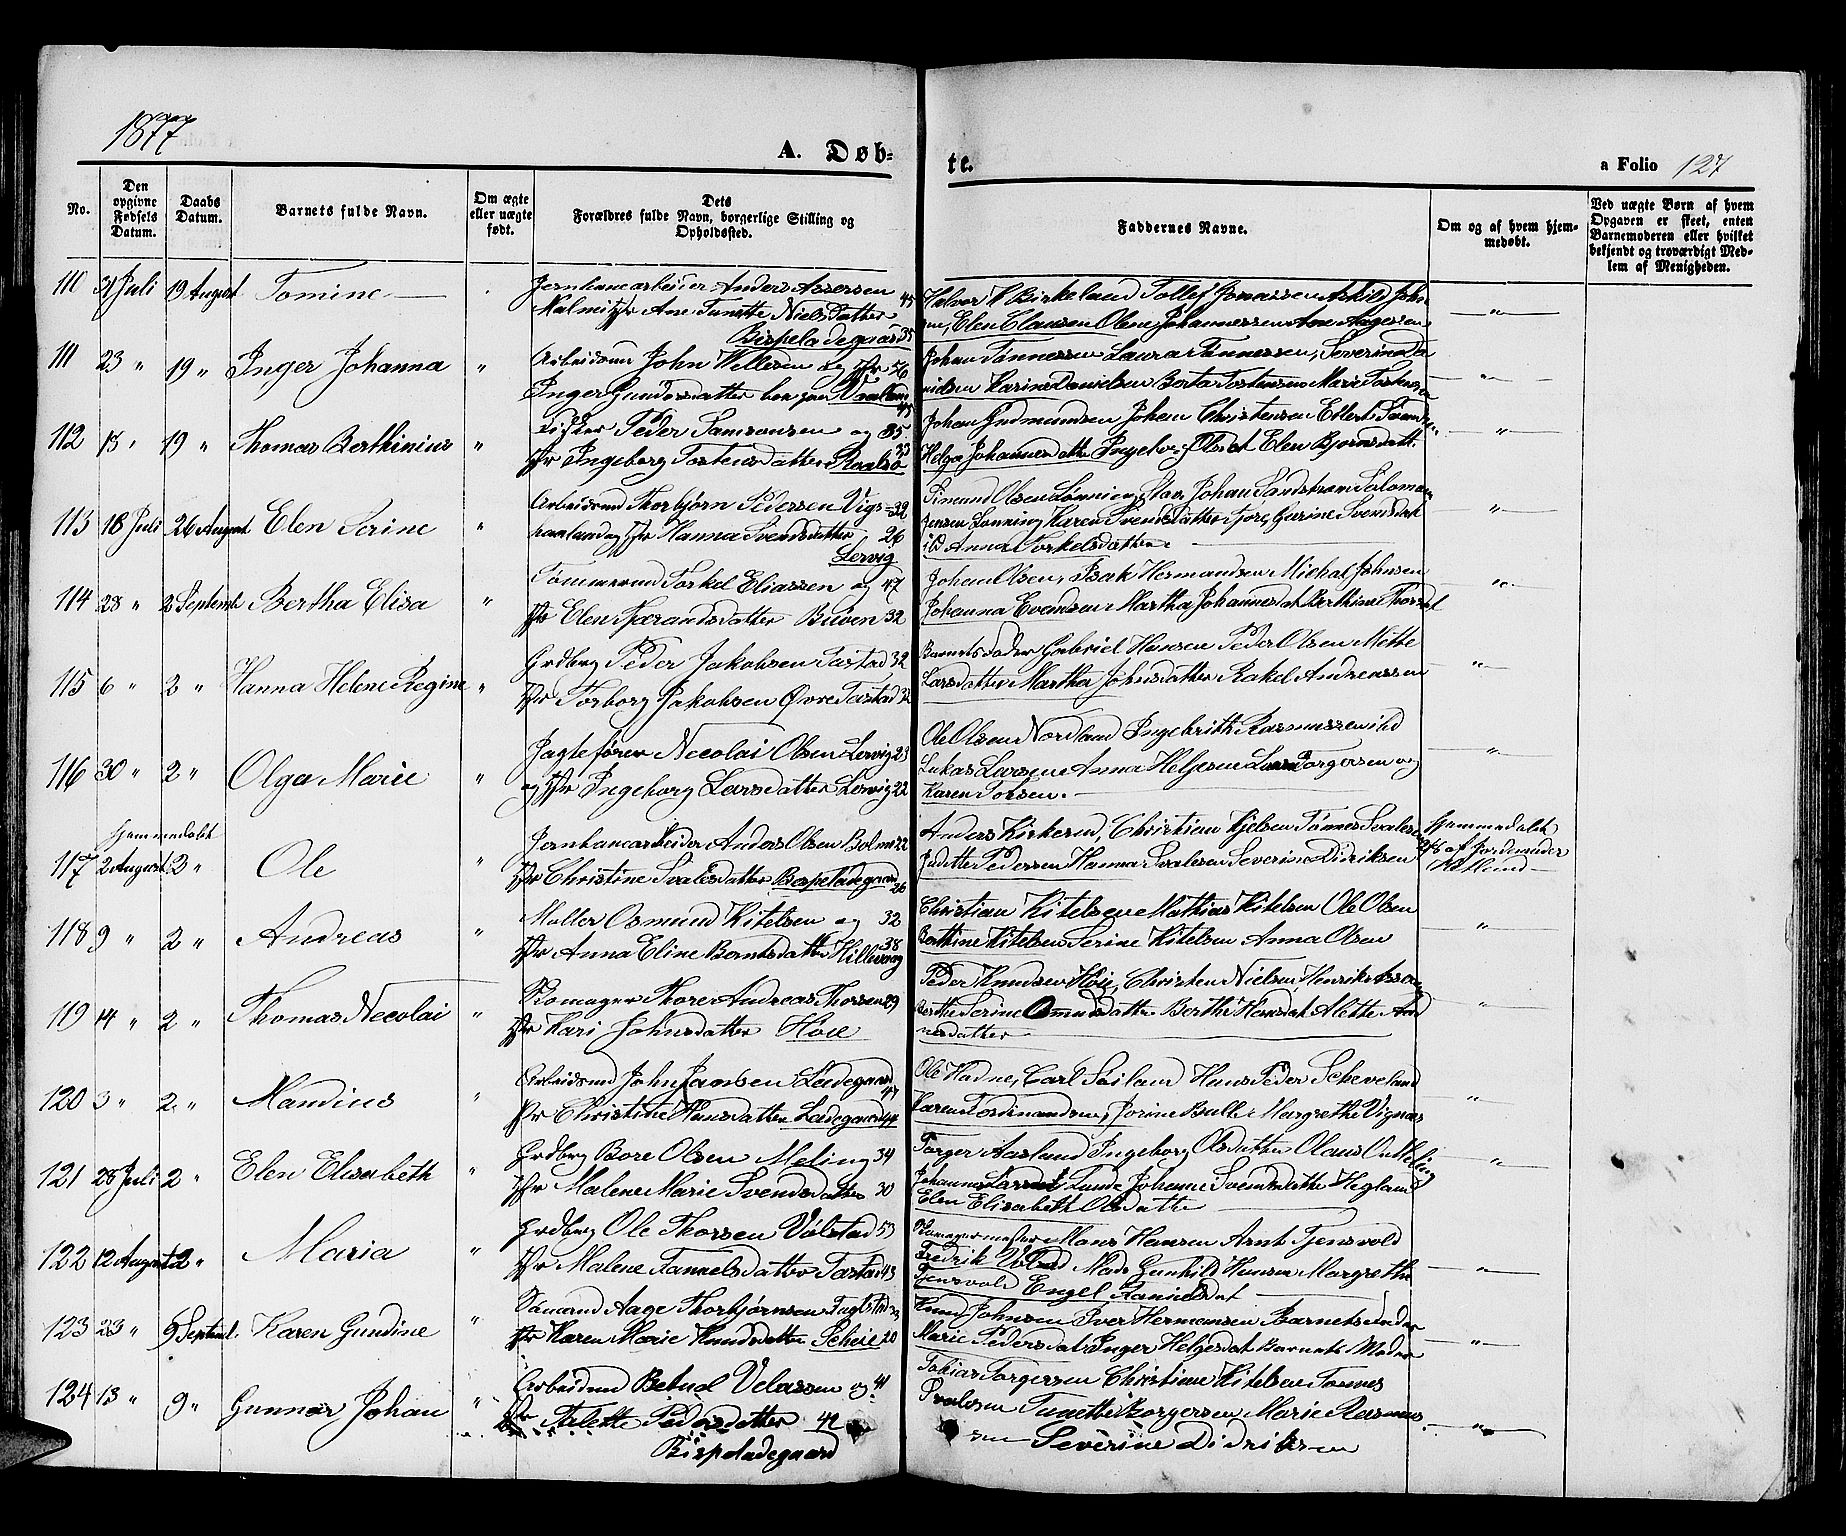 1877
A. Døb-
te.
a Folio 127
No.
Den opgivne Fødsels Datum.
Daabs Datum.
Barnets fulde Navn.
Om ægte eller uægte født.
Dets Forældres fulde Navn, borgerlige Stilling og Opholdssted.
Faddernes Navne.
Om og af hvem hjem-
medøbt.
Ved uægte Børn af hvem
Opgaven er skeet, enten
Barnemoderen eller hvilket
bekjendt og troværdigt Med-
lem af Menigheden.
110 31 Juli 19 August Tomine
Anders Assersen 45
Ane Tunette Nielsdatter
Bispeladegaard 35
Halvor Birkeland Tollef Jonassen Askild John
sen, Elen Clausen Olene Johannessen Ane Aagessen
111 23 " 19 " Inger Johanna "
Arbeidsmd John Vellesen og
Inger Gundersdatter
Johan Tønnessen Laura Tønnessen, Severine Da
nielsen Karine Danielsen Berta Tostensen Marie Tostensen
112 13 " 19 " Thomas Berthinius "
Fisker Peder Samsonsen og 35
Ingeborg Tostensdatter
Johan Gudmundsen Johan Christensen Ellert
Helga Johannesdatter Olsdat Elen Bjornsdatt
113 18 Juli 26 August Elen Serine "
Arbeidsmd Thorbjørn Pedersen Vigs- 32
Hanna Svendsdatter 26
Lervig
Simund Olsen Johan Sandstrøm Salomon
Jensen Lonning Karen Svendsdatter Gurine Svendsdat
Anna Torkelsdatter
114 28 " 2 Septemb Bertha Elisa "
Tømmermd Torkel Eliassen og 47
Elen datter Buøen 32
Johan Olsen, Isak Hermandsen Michal Johnsen
Johanna Evensen Martha Johannesdat Berthine Thorsdat
115 6 " 2 " Hanna Helene Regine "
Grdbrg Peder Jakobsen Tastad 32
Torborg Jakobsen Øvre Tastad 32
Barnets Fader Gabriel Hansen Peder Olsen Mette
Larsdatter Martha Johnsdatter Rakel Andreassen
116 30 " 2 " Olga Marie "
Jagtefører Necolai Olsen Lervig 23
og Ingeborg Larsdatter Lervig 22
Ole Olsen Nordland Ingebrith Rasmussen
Lukas Larsen Anna Helgesen Torgersen og
Karen Tolsen.
Hjemmedøbt
117 2 August 2 " Ole "
Jernbanearbeider Anders Olsen 22
Christine Svalesdatter Bespeladegaard 26
Anders Kirkerud, Christian Kjelsen Tønnes Svalesen
Pedersen Hanna Svalesen Severine Didriksen
Hjemmedøbt
af Jordemoder
Hatlund
118 9 " 2 " Andreas "
Møller Osmund Kitelsen og 32
Anna Eline Berntsdatter Hillevaag 38
Christian Kitelsen Mathias Kitelsen Ole Olsen
Berthine Kitelsen Serine Kitelsen Anna Olsen
119 14 " 2 " Thomas Necolai "
Skomager Thore Andreas Thorsen 29
Kari Johnsdatter Høie
Peder Knudsen Høie, Christen Nielsen, Henrik
Berthe Serine datter Berthe Hansdat Alette And
resdatter
120 3 " 2 " Mandius "
Arbeidsmd John Jansen Ladegaard 47
Christine Hansdatter Ladegaard 44
Ole Hadne, Carl Søiland Hans Peder Scheveland
Karen Ferdinandsen, Jorine Bull Margrethe Vignæs
121 28 Juli 2 " Elen Elisabeth "
Grdbrg Bore Olsen Meling 34
Malene Marie Svendsdatter 30
Torger Aasland Ingeborg Olsdatter Olaus O. Meling
Johannes Lunde Johanne Svendsdatter
Elen Elisabeth Olsdatter
122 12 August 2 " Maria "
Grdbrg Ole Thorsen Vølstad 53
Malene Tannelsdatter Tastad 43
Skomagermester Mons Hansen Arnt Tjensvold
Fredrik Gunhild Hansen Margrethe
Tjensvold Engel
123 23 " 9 Septemb. Karen Gundine "
Sømand Aage Thorbjørnsen
Karen Marie Knudsdatter Scheie 20
Knud Johnsen Iver Hermansen Barnets Fader
Marie Pedersdat Inger Helgesdat Barnets Moder
124 13 " 9 " Gunnar Johan "
Arbeidsmd Betuel Velassen og 41
Alette Pedersdatter 42
Bispeladegaard
Tobias Torgersen Christian Kitelsen Tønnes
Svalesen Tunette Borgersen Marie Rasmus
sen Severine Didriksen